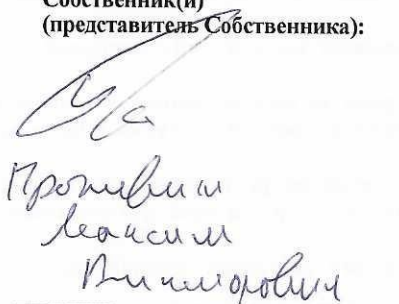 Собственник(и)
(представитель Собственника):
Максим
Викторович